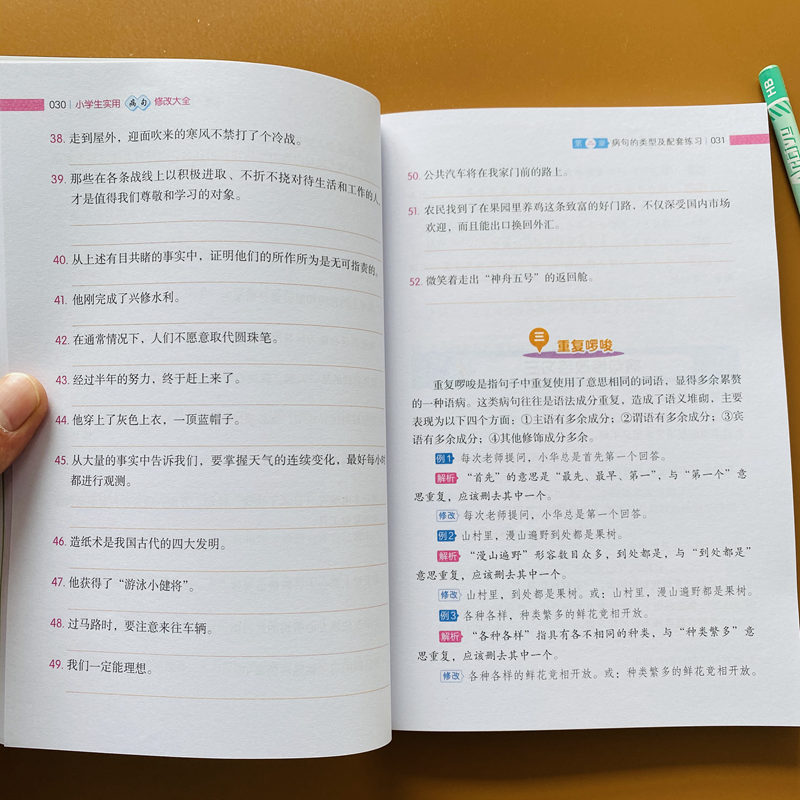 030 小学生实用 病句 修改大全
38. 走到屋外，迎面吹来的寒风不禁打了个冷战。
39. 那些在各条战线上以积极进取、不折不挠对待生活和工作的人，
才是值得我们尊敬和学习的对象。
40. 从上述有目共睹的事实中，证明他们的所作所为是无可指责的。
41. 他刚完成了兴修水利。
42. 在通常情况下，人们不愿意取代圆珠笔。
43. 经过半年的努力，终于赶上来了。
44. 他穿上了灰色上衣，一顶蓝帽子。
45. 从大量的事实中告诉我们，要掌握天气的连续变化，最好每小时
都进行观测。
46. 造纸术是我国古代的四大发明。
47. 他获得了“游泳小健将”。
48. 过马路时，要注意来往车辆。
49. 我们一定能理想。
病句的类型及配套练习 031
50. 公共汽车将在我家门前的路上。
51. 农民找到了在果园里养鸡这条致富的好门路，不仅深受国内市场
欢迎，而且能出口换回外汇。
52. 微笑着走出“神舟五号”的返回舱。
三 重复啰唆
重复啰唆是指句子中重复使用了意思相同的词语，显得多余累赘
的一种语病。这类病句往往是语法成分重复，造成了语义堆砌，主要
表现为以下四个方面：①主语有多余成分；②谓语有多余成分；③宾
语有多余成分；④其他修饰成分多余。
例1 每次老师提问，小华总是首先第一个回答。
解析 “首先”的意思是“最先、最早、第一”，与“第一个”意
思重复，应该删去其中一个。
修改 每次老师提问，小华总是第一个回答。
例2 山村里，漫山遍野到处都是果树。
解析 “漫山遍野”形容数目众多，到处都是，与“到处都是”
意思重复，应该删去其中一个。
修改 山村里，到处都是果树。或：山村里，漫山遍野都是果树。
例3 各种各样，种类繁多的鲜花竞相开放。
解析 “各种各样”指具有各不相同的种类，与“种类繁多”意
思重复，应该删去其中一个。
修改 各种各样的鲜花竞相开放。或：种类繁多的鲜花竞相开放。
HB